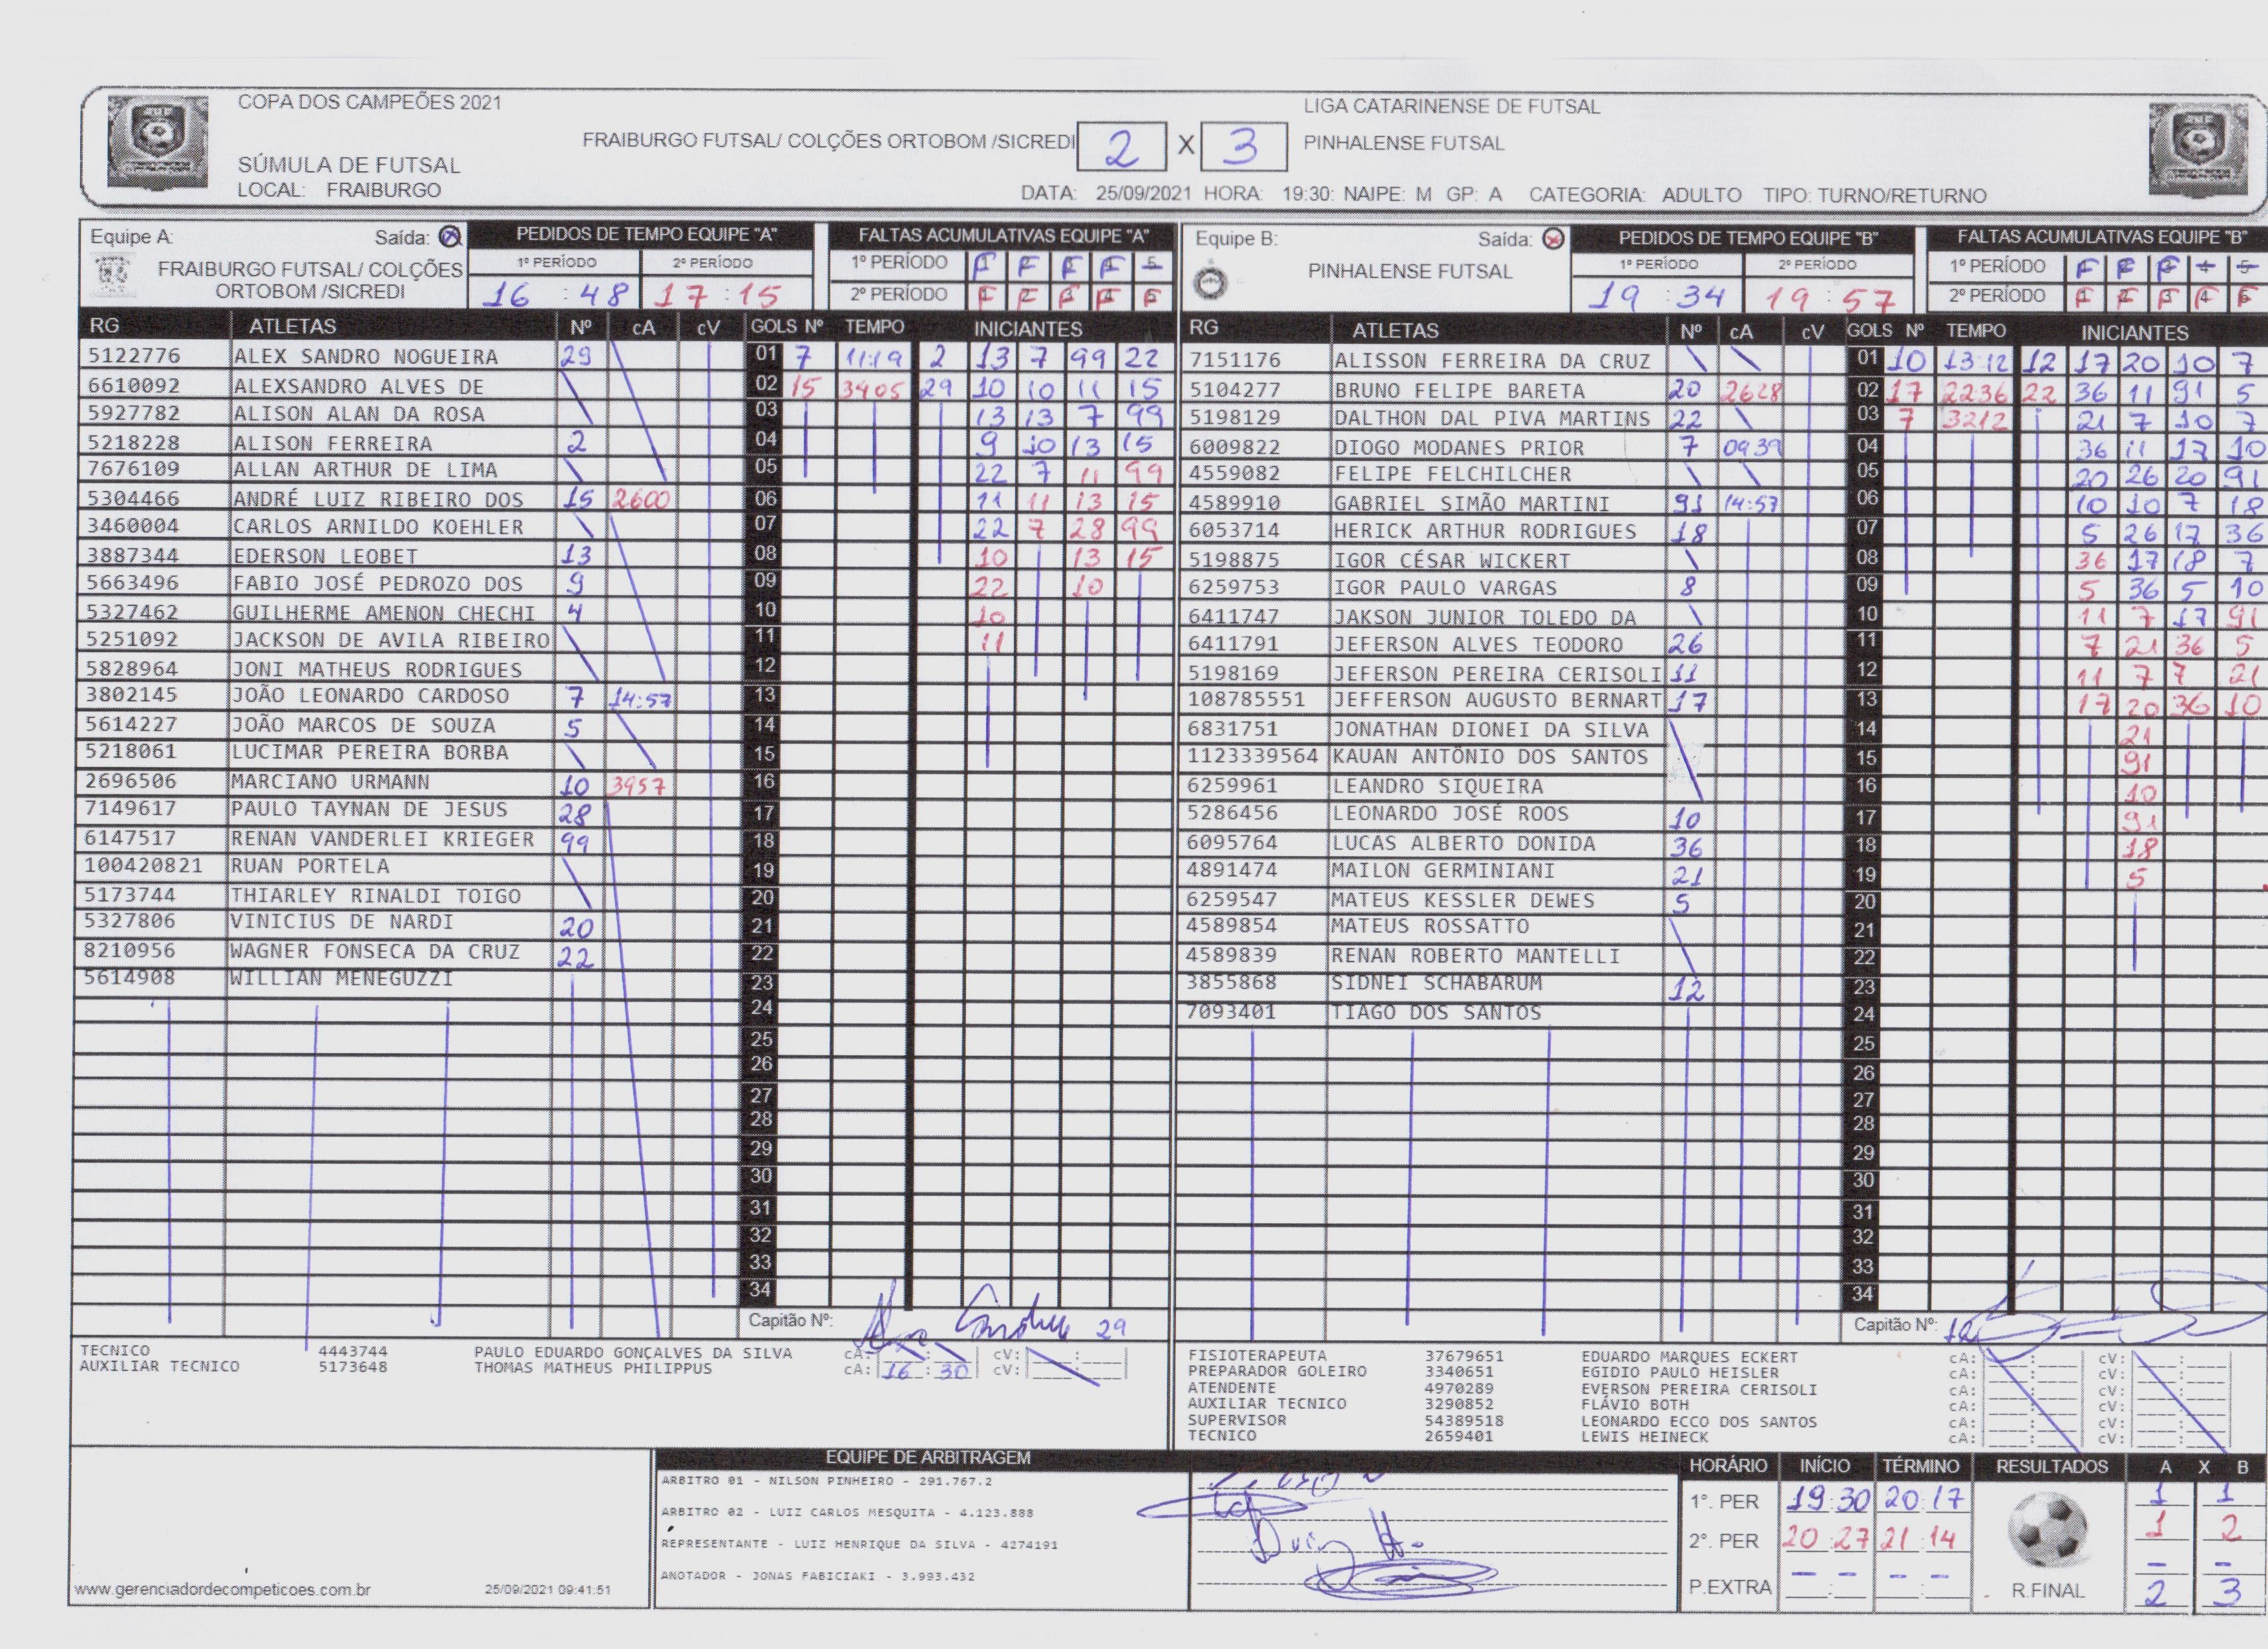 COPA DOS CAMPEÕES 2021
LIGA CATARINENSE DE FUTSAL
FRAIBURGO FUTSAL/ COLÇÕES ORTOBOM /SICREDI 2 X 3 PINHALENSE FUTSAL
SÚMULA DE FUTSAL
LOCAL: FRAIBURGO
DATA: 25/09/2021 HORA: 19:30: NAIPE: M GP: A CATEGORIA: ADULTO TIPO: TURNO/RETURNO
Equipe A: Saída:
FRAIBURGO FUTSAL/ COLÇÕES
ORTOBOM /SICREDI
PEDIDOS DE TEMPO EQUIPE "A"
1º PERÍODO 2º PERÍODO
16 : 48 17 : 15
FALTAS ACUMULATIVAS EQUIPE "A"
1º PERÍODO F F F F 5
2º PERÍODO F F F F F
RG ATLETAS Nº cA cV GOLS Nº TEMPO INICIANTES
5122776 ALEX SANDRO NOGUEIRA 29 01 7 11:19 2 13 7 99 22
6610092 ALEXSANDRO ALVES DE 02 15 3405 29 10 10 11 15
5927782 ALISON ALAN DA ROSA 03 13 13 7 99
5218228 ALISON FERREIRA 2 04 9 10 13 15
7676109 ALLAN ARTHUR DE LIMA 05 22 7 11 99
5304466 ANDRÉ LUIZ RIBEIRO DOS 15 2600 06 11 11 13 15
3460004 CARLOS ARNILDO KOEHLER 07 22 7 28 99
3887344 EDERSON LEOBET 13 08 10 13 15
5663496 FABIO JOSÉ PEDROZO DOS 9 09 22 10
5327462 GUILHERME AMENON CHECHI 4 10 10
5251092 JACKSON DE AVILA RIBEIRO 11 11
5828964 JONI MATHEUS RODRIGUES 12
3802145 JOÃO LEONARDO CARDOSO 7 14:57 13
5614227 JOÃO MARCOS DE SOUZA 5 14
5218061 LUCIMAR PEREIRA BORBA 15
2696506 MARCIANO URMANN 10 3957 16
7149617 PAULO TAYNAN DE JESUS 28 17
6147517 RENAN VANDERLEI KRIEGER 99 18
100420821 RUAN PORTELA 19
5173744 THIARLEY RINALDI TOIGO 20
5327806 VINICIUS DE NARDI 20 21
8210956 WAGNER FONSECA DA CRUZ 22 22
5614908 WILLIAN MENEGUZZI 23
24
25
26
27
28
29
30
31
32
33
34
Capitão Nº: 29
TECNICO 4443744 PAULO EDUARDO GONÇALVES DA SILVA cA: cV:
AUXILIAR TECNICO 5173648 THOMAS MATHEUS PHILIPPUS cA: 16 : 30 cV:
Equipe B: Saída:
PINHALENSE FUTSAL
PEDIDOS DE TEMPO EQUIPE "B"
1º PERÍODO 2º PERÍODO
19 : 34 19 : 57
FALTAS ACUMULATIVAS EQUIPE "B"
1º PERÍODO F F F 4 5
2º PERÍODO F F F F F
RG ATLETAS Nº cA cV GOLS Nº TEMPO INICIANTES
7151176 ALISSON FERREIRA DA CRUZ 01 10 13:12 12 17 20 10 7
5104277 BRUNO FELIPE BARETA 20 2628 02 17 2236 22 36 11 91 5
5198129 DALTHON DAL PIVA MARTINS 22 03 7 3212 21 7 10 7
6009822 DIOGO MODANES PRIOR 7 0939 04 36 11 17 10
4559082 FELIPE FELCHILCHER 05 20 26 20 91
4589910 GABRIEL SIMÃO MARTINI 91 14:57 06 10 10 7 18
6053714 HERICK ARTHUR RODRIGUES 18 07 5 26 17 36
5198875 IGOR CÉSAR WICKERT 08 36 17 18 7
6259753 IGOR PAULO VARGAS 8 09 5 36 5 10
6411747 JAKSON JUNIOR TOLEDO DA 10 11 7 17 91
6411791 JEFERSON ALVES TEODORO 26 11 7 21 36 5
5198169 JEFERSON PEREIRA CERISOLI 11 12 11 7 7 21
108785551 JEFFERSON AUGUSTO BERNART 17 13 17 20 36 10
6831751 JONATHAN DIONEI DA SILVA 14 21
1123339564 KAUAN ANTÔNIO DOS SANTOS 15 91
6259961 LEANDRO SIQUEIRA 16 10
5286456 LEONARDO JOSÉ ROOS 10 17 91
6095764 LUCAS ALBERTO DONIDA 36 18 18
4891474 MAILON GERMINIANI 21 19 5
6259547 MATEUS KESSLER DEWES 5 20
4589854 MATEUS ROSSATTO 21
4589839 RENAN ROBERTO MANTELLI 22
3855868 SIDNEI SCHABARUM 12 23
7093401 TIAGO DOS SANTOS 24
25
26
27
28
29
30
31
32
33
34
Capitão Nº: 12
FISIOTERAPEUTA 37679651 EDUARDO MARQUES ECKERT cA: cV:
PREPARADOR GOLEIRO 3340651 EGIDIO PAULO HEISLER cA: cV:
ATENDENTE 4970289 EVERSON PEREIRA CERISOLI cA: cV:
AUXILIAR TECNICO 3290852 FLÁVIO BOTH cA: cV:
SUPERVISOR 54389518 LEONARDO ECCO DOS SANTOS cA: cV:
TECNICO 2659401 LEWIS HEINECK cA: cV:
EQUIPE DE ARBITRAGEM
ARBITRO 01 - NILSON PINHEIRO - 291.767.2
ARBITRO 02 - LUIZ CARLOS MESQUITA - 4.123.888
REPRESENTANTE - LUIZ HENRIQUE DA SILVA - 4274191
ANOTADOR - JONAS FABICIAKI - 3.993.432
HORÁRIO INÍCIO TÉRMINO RESULTADOS A X B
1º. PER 19:30 20:17 1 1
2º. PER 20:27 21:14 1 2
P.EXTRA - - : - - - - : - - - -
R.FINAL 2 3
www.gerenciadordecompeticoes.com.br 25/09/2021 09:41:51